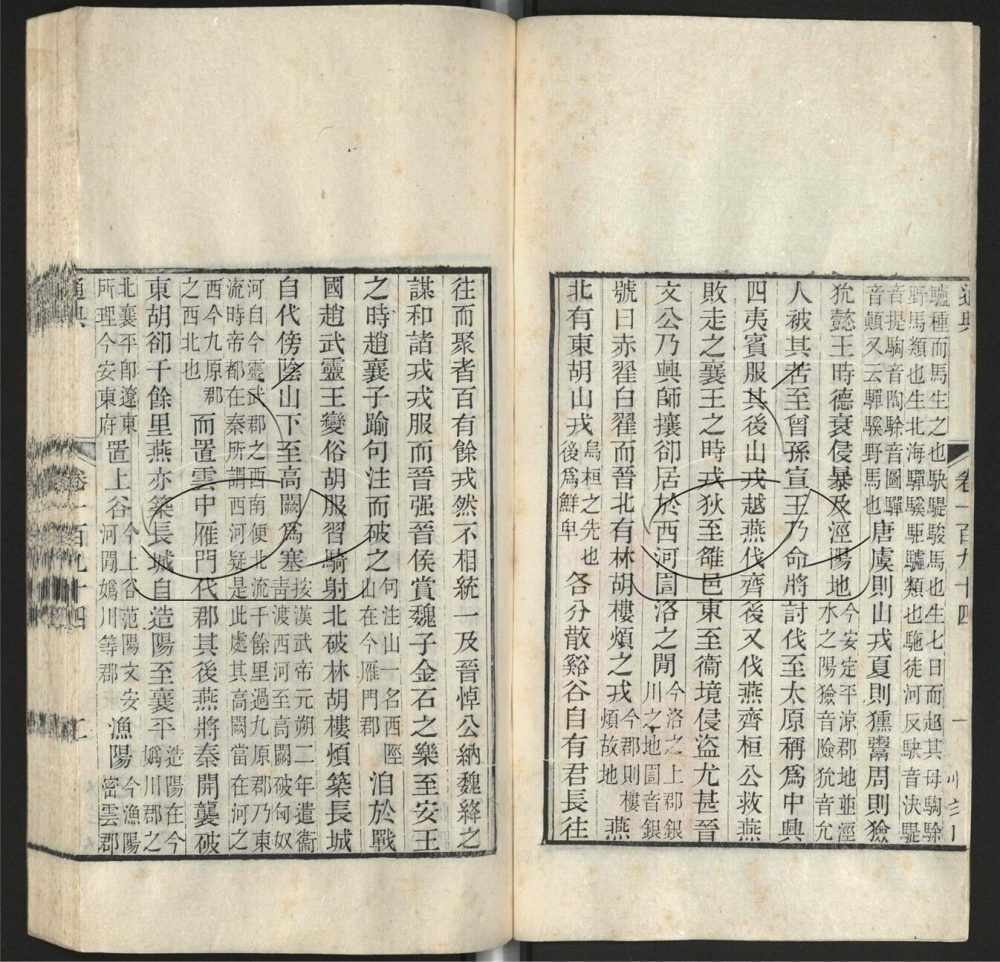 通典
卷一百九十四
一
驢種而馬生之也駃騠駿馬也生七日而超其母騊駼
野馬類也生北海驒騱駏驉類也駞徒河反駃音決騠
音提騊音陶駼音圖驒
音顛又云驒騱野馬也
唐虞則山戎夏則獯鬻周則獫
狁懿王時德衰侵暴及涇陽地
今安定平涼郡地並涇
水之陽獫音險狁音允
人被其苦至曾孫宣王乃命將討伐至太原稱爲中興
四夷賓服其後山戎越燕伐齊後又伐燕齊桓公救燕
敗走之襄王之時戎狄至雒邑東至衞境侵盜尤甚晉
文公乃興師攘卻居於西河圁洛之閒
今洛之上郡銀
川之地圁音銀
號曰赤翟白翟而晉北有林胡樓煩之戎
今郡則樓
煩故地
燕
北有東胡山戎
烏桓之先也
後爲鮮卑
各分散谿谷自有君長往
往而聚者百有餘戎然不相統一及晉悼公納魏絳之
謀和諸戎戎服而晉强晉侯賞魏子金石之樂至安王
之時趙襄子踰句注而破之
句注山一名西陘
山在今雁門郡
洎於戰
國趙武靈王變俗胡服習騎射北破林胡樓煩築長城
自代傍陰山下至高闕爲塞
按漢武帝元朔二年遣衞
靑渡西河至高闕破匈奴
河自今靈武郡之西南便北流千餘里過九原郡乃東
流時帝都在秦所謂西河疑是此處其高闕當在河之
西今九原郡
之西北也
而置雲中雁門代郡其後燕將秦開襲破
東胡卻千餘里燕亦築長城自造陽至襄平
造陽在今
媯川郡之
北襄平卽遼東
所理今安東府
置上谷
今上谷范陽文安
河閒媯川等郡
漁陽
今漁陽
密雲郡
通典
卷一百九十四
二